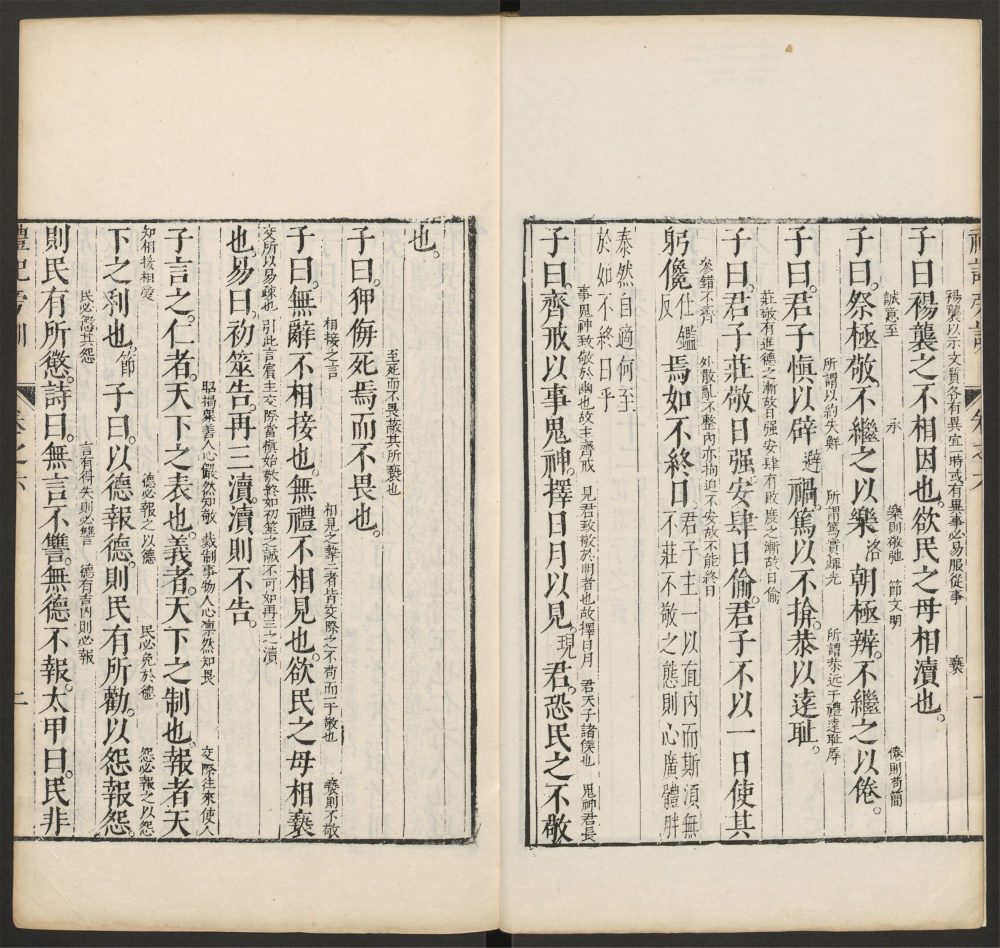 禮記旁訓 卷之六 一
裼襲以示文質各有異宜一時或有異事必易服從事 褻
子曰裼襲之不相因也欲民之毋相瀆也
誠意至 承 樂則敬弛 節文明 倦則苟簡
子曰祭極敬不繼之以樂洛朝極辨不繼之以倦
所謂以約失鮮 所謂篤實輝光 所謂恭近于禮遠耻辱
子曰君子慎以辟避禍篤以不揜恭以遠耻
莊敬有進德之漸故日强安肆有敗度之漸故日偷
子曰君子莊敬日强安肆日偷君子不以一日使其
參錯不齊 外散亂不整內亦拘迫不安故不能終日
躬儳仕鑑反焉如不終日君子主一以直內而斯須無不莊不敬之態則心廣體胖
泰然自適何至於如不終日乎
事鬼神致敬於幽也故主齊戒 見君致敬於明者也故擇日月 君天子諸侯也 鬼神君長
子曰齊戒以事鬼神擇日月以見現君恐民之不敬
也
至死而不畏蔽其所褻也
子曰狎侮死焉而不畏也
相接之言 相見之摯二者皆交際之不苟而一于敬也 褻則不敬
子曰無辭不相接也無禮不相見也欲民之毋相褻
交所以易疎也 引此言賓主交際當慎始敬終如初筮之誠不可如再三之瀆
也易曰初筮告再三瀆瀆則不告
昭揭渠善人心儼然知敬 裁制事物人心凛然知畏 交際往來使人
子言之仁者天下之表也義者天下之制也報者天
知相接相愛 德必報之以德 民必免於德 怨必報之以怨
下之利也節子曰以德報德則民有所勸以怨報怨
民必懲其怨 言有得失則必讐 德有吉凶則必報
則民有所懲詩曰無言不讐無德不報太甲曰民非
禮記旁訓 卷之六 二